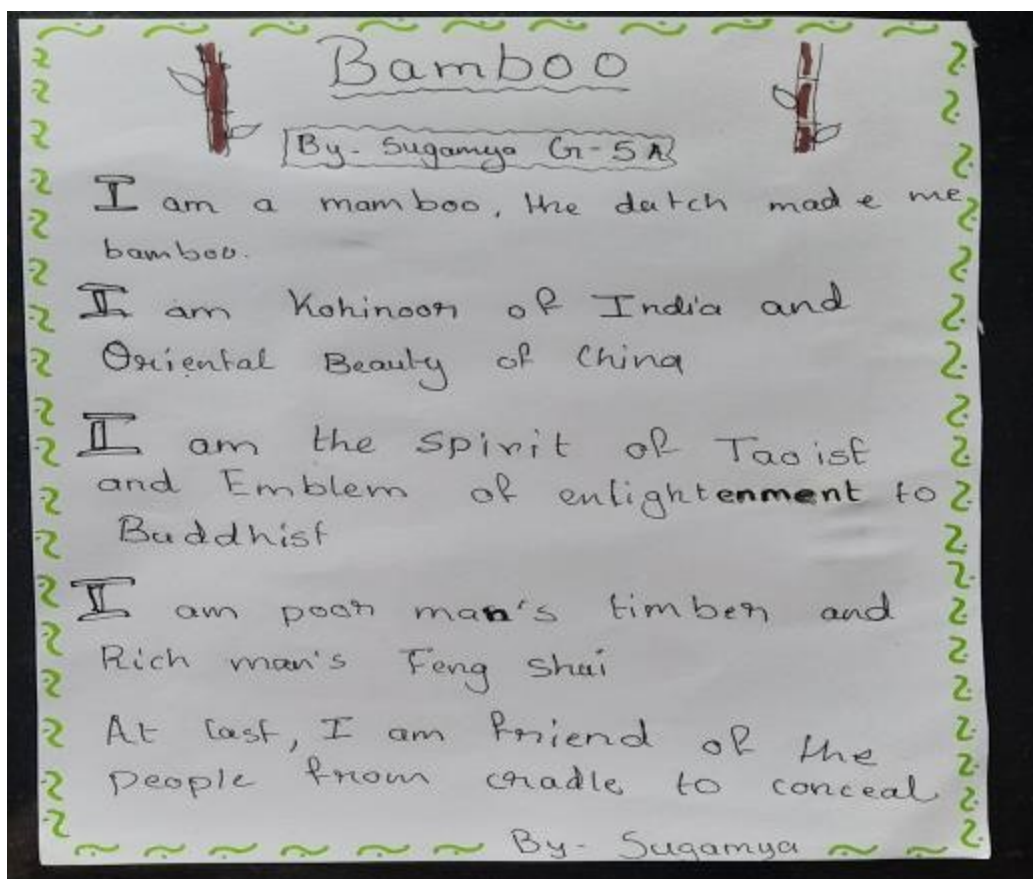 Bamboo
By- Sugamya G-5A
I am a mamboo, the dutch made me
bamboo.
I am Kohinoor of India and
Oriental Beauty of China
I am the spirit of Taoist
and Emblem of enlightenment to
Buddhist
I am poor man's timber and
Rich man's Feng shui
At last, I am friend of the
people from cradle to conceal
By- Sugamya